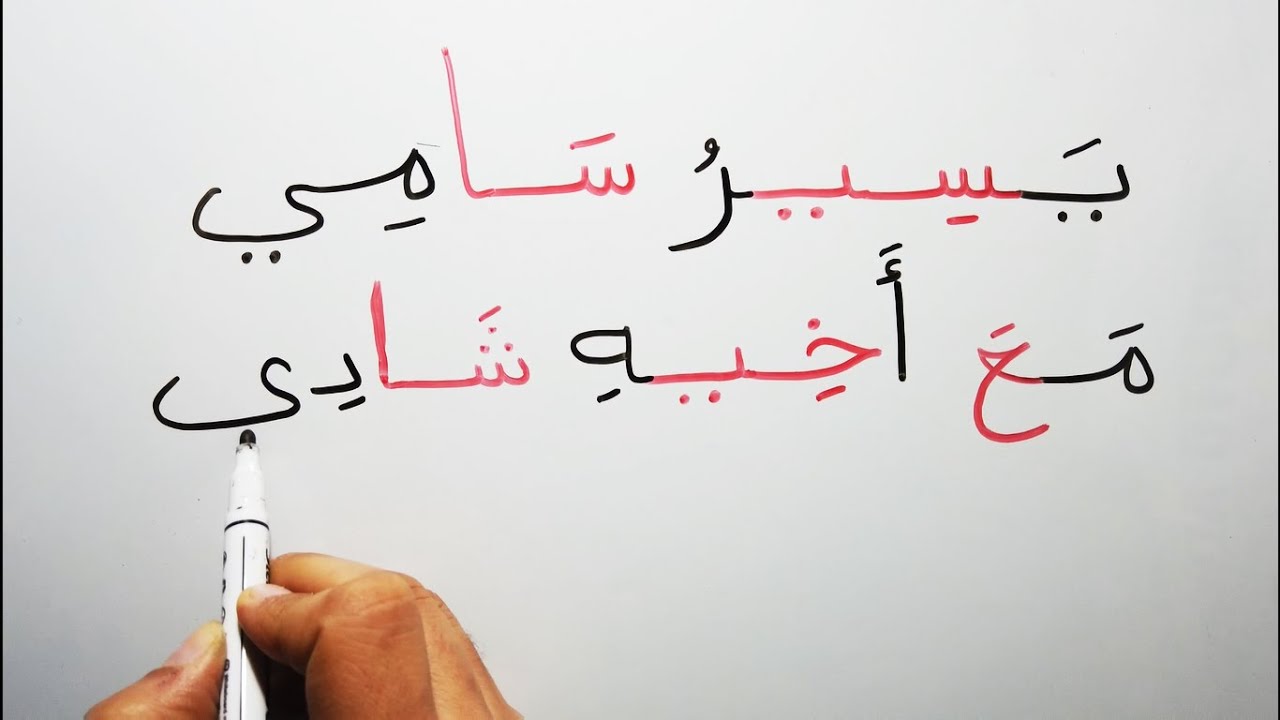 يَسِيرُ سَامِي
مَعَ أَخِيهِ شَادِى